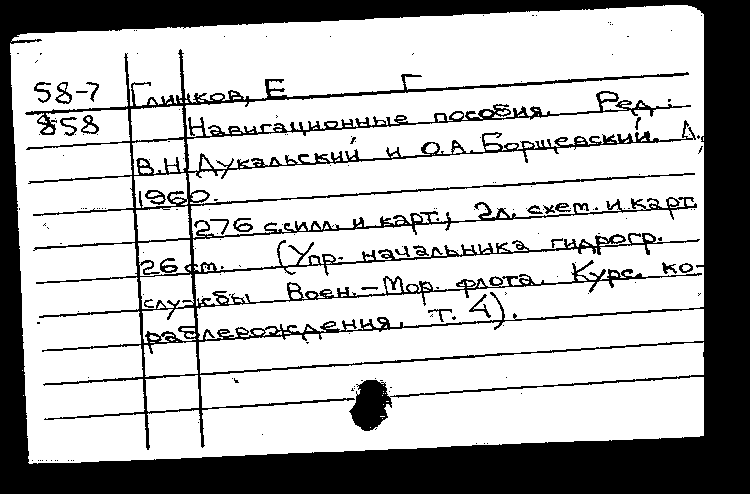 58-7 Глинков, Е Г
858 Навигационные пособия. Ред.:
В.Н. Дукальский и О.А. Борщевский. Л.,
1960.
276 с.силл. и карт.; 2л. схем. и карт.
26 cm. (Упр. начальника гидрогр.
службы Воен.-Мор. флота. Курс. ко-
раблевождения, т. 4).